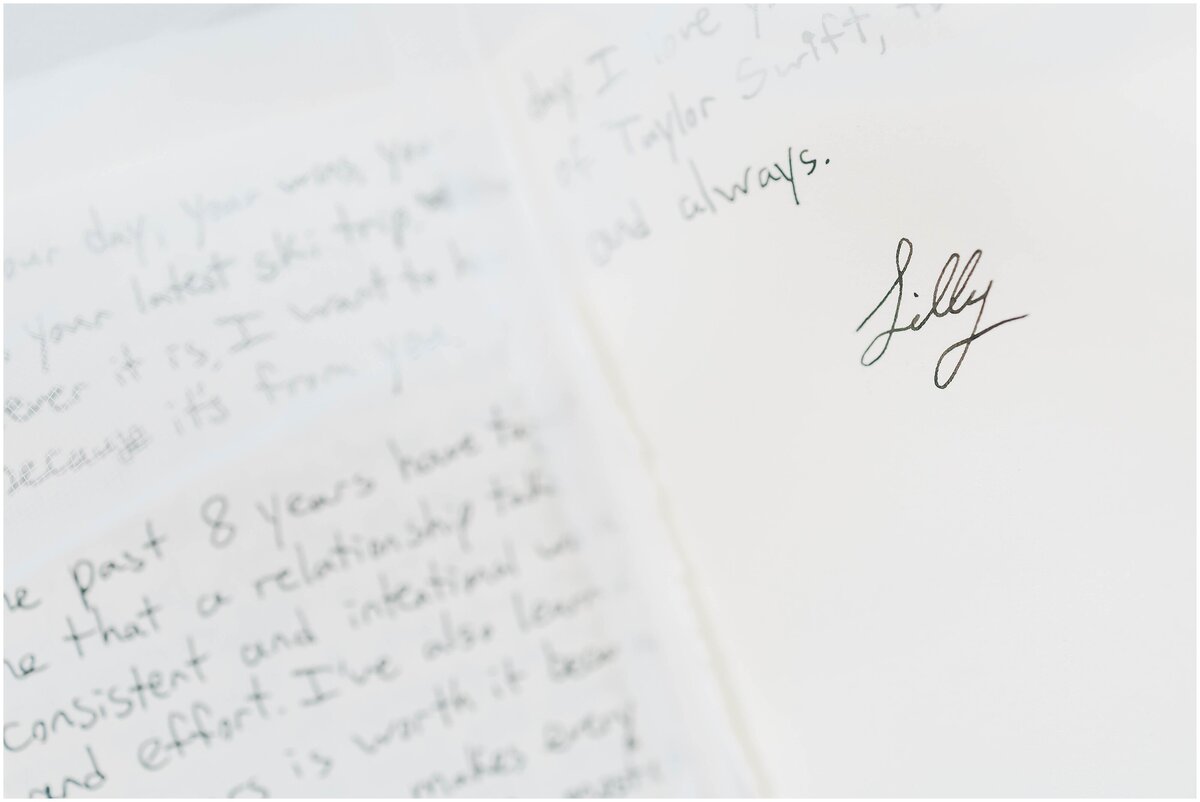 our day, your worry, you
your latest ski trip.
ever it is, I want to h
because it's from you
he past 8 years have t
me that a relationship tak
consistent and intentional w
and effort. I've also lear
is worth it becau
makes every
day I love y
of Taylor Swift,
and always.
Lilly